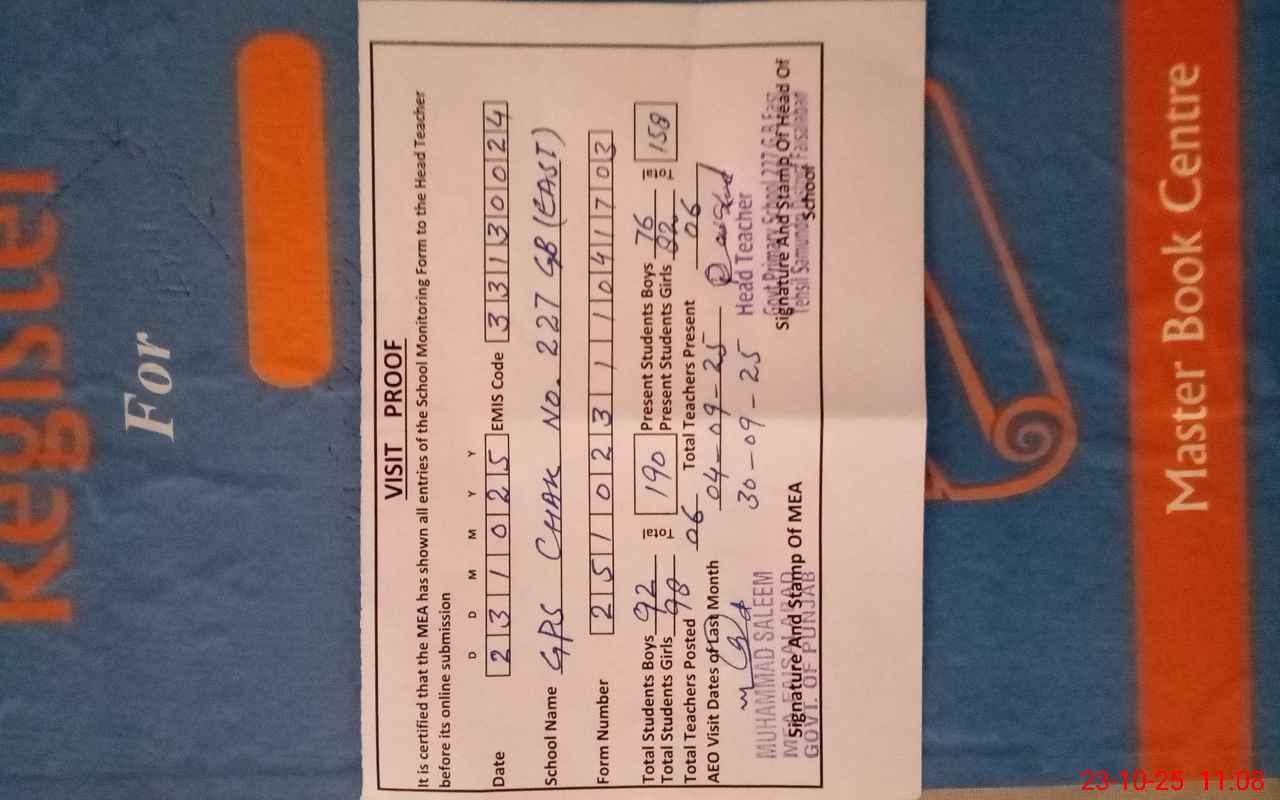 Register
For
VISIT PROOF
It is certified that the MEA has shown all entries of the School Monitoring Form to the Head Teacher
before its online submission
D D M M Y Y
Date 2 3 1 0 2 5 EMIS Code 3 3 1 3 0 0 2 4
School Name GPS CHAK NO. 227 GB (EAST)
Form Number 2 5 1 0 2 3 1 1 0 4 1 7 0 3
Total Students Boys 92 Total 190 Present Students Boys 76 Total 158
Total Students Girls 98 Present Students Girls
Total Teachers Posted 06 Total Teachers Present 06
AEO Visit Dates of Last Month 04-09-25
30-09-25
MUHAMMAD SALEEM Head Teacher
MEA FAISALABAD Govt Primary School 227 G.B East
Signature And Stamp Of MEA Signature And Stamp Of Head Of
GOVT. OF PUNJAB Tehsil Samundri Faisalabad
School
Master Book Centre
23-10-25 11:08